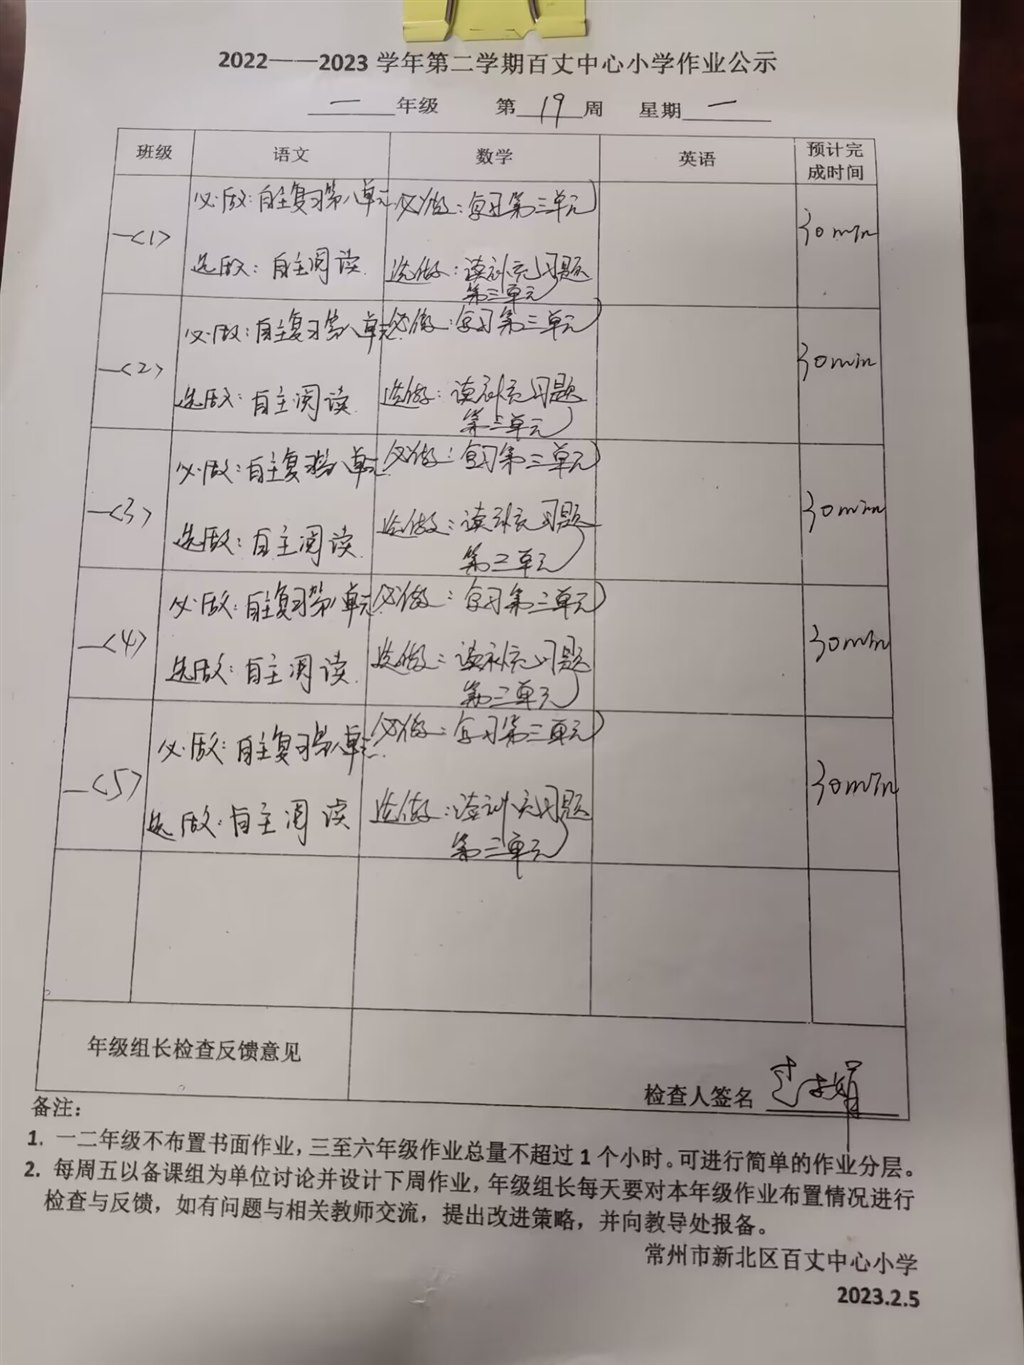 2022——2023 学年第二学期百丈中心小学作业公示
一 年级 第 19 周 星期 一
班级 语文 数学 英语 预计完成时间
一<1> 必做：自主复习第八单元 必做：复习第三单元 30min
选做：自主阅读 选做：读补充习题
第三单元
一<2> 必做：自主复习第八单元 必做：复习第三单元 30min
选做：自主阅读 选做：读补充习题
第三单元
一<3> 必做：自主复习第八单元 必做：复习第三单元 30min
选做：自主阅读 选做：读补充习题
第三单元
一<4> 必做：自主复习第八单元 必做：复习第三单元 30min
选做：自主阅读 选做：读补充习题
第三单元
一<5> 必做：自主复习第八单元 必做：复习第三单元 30min
选做：自主阅读 选做：读补充习题
第三单元
年级组长检查反馈意见
检查人签名
备注：
1. 一二年级不布置书面作业，三至六年级作业总量不超过 1 个小时。可进行简单的作业分层。
2. 每周五以备课组为单位讨论并设计下周作业，年级组长每天要对本年级作业布置情况进行
检查与反馈，如有问题与相关教师交流，提出改进策略，并向教导处报备。
常州市新北区百丈中心小学
2023.2.5